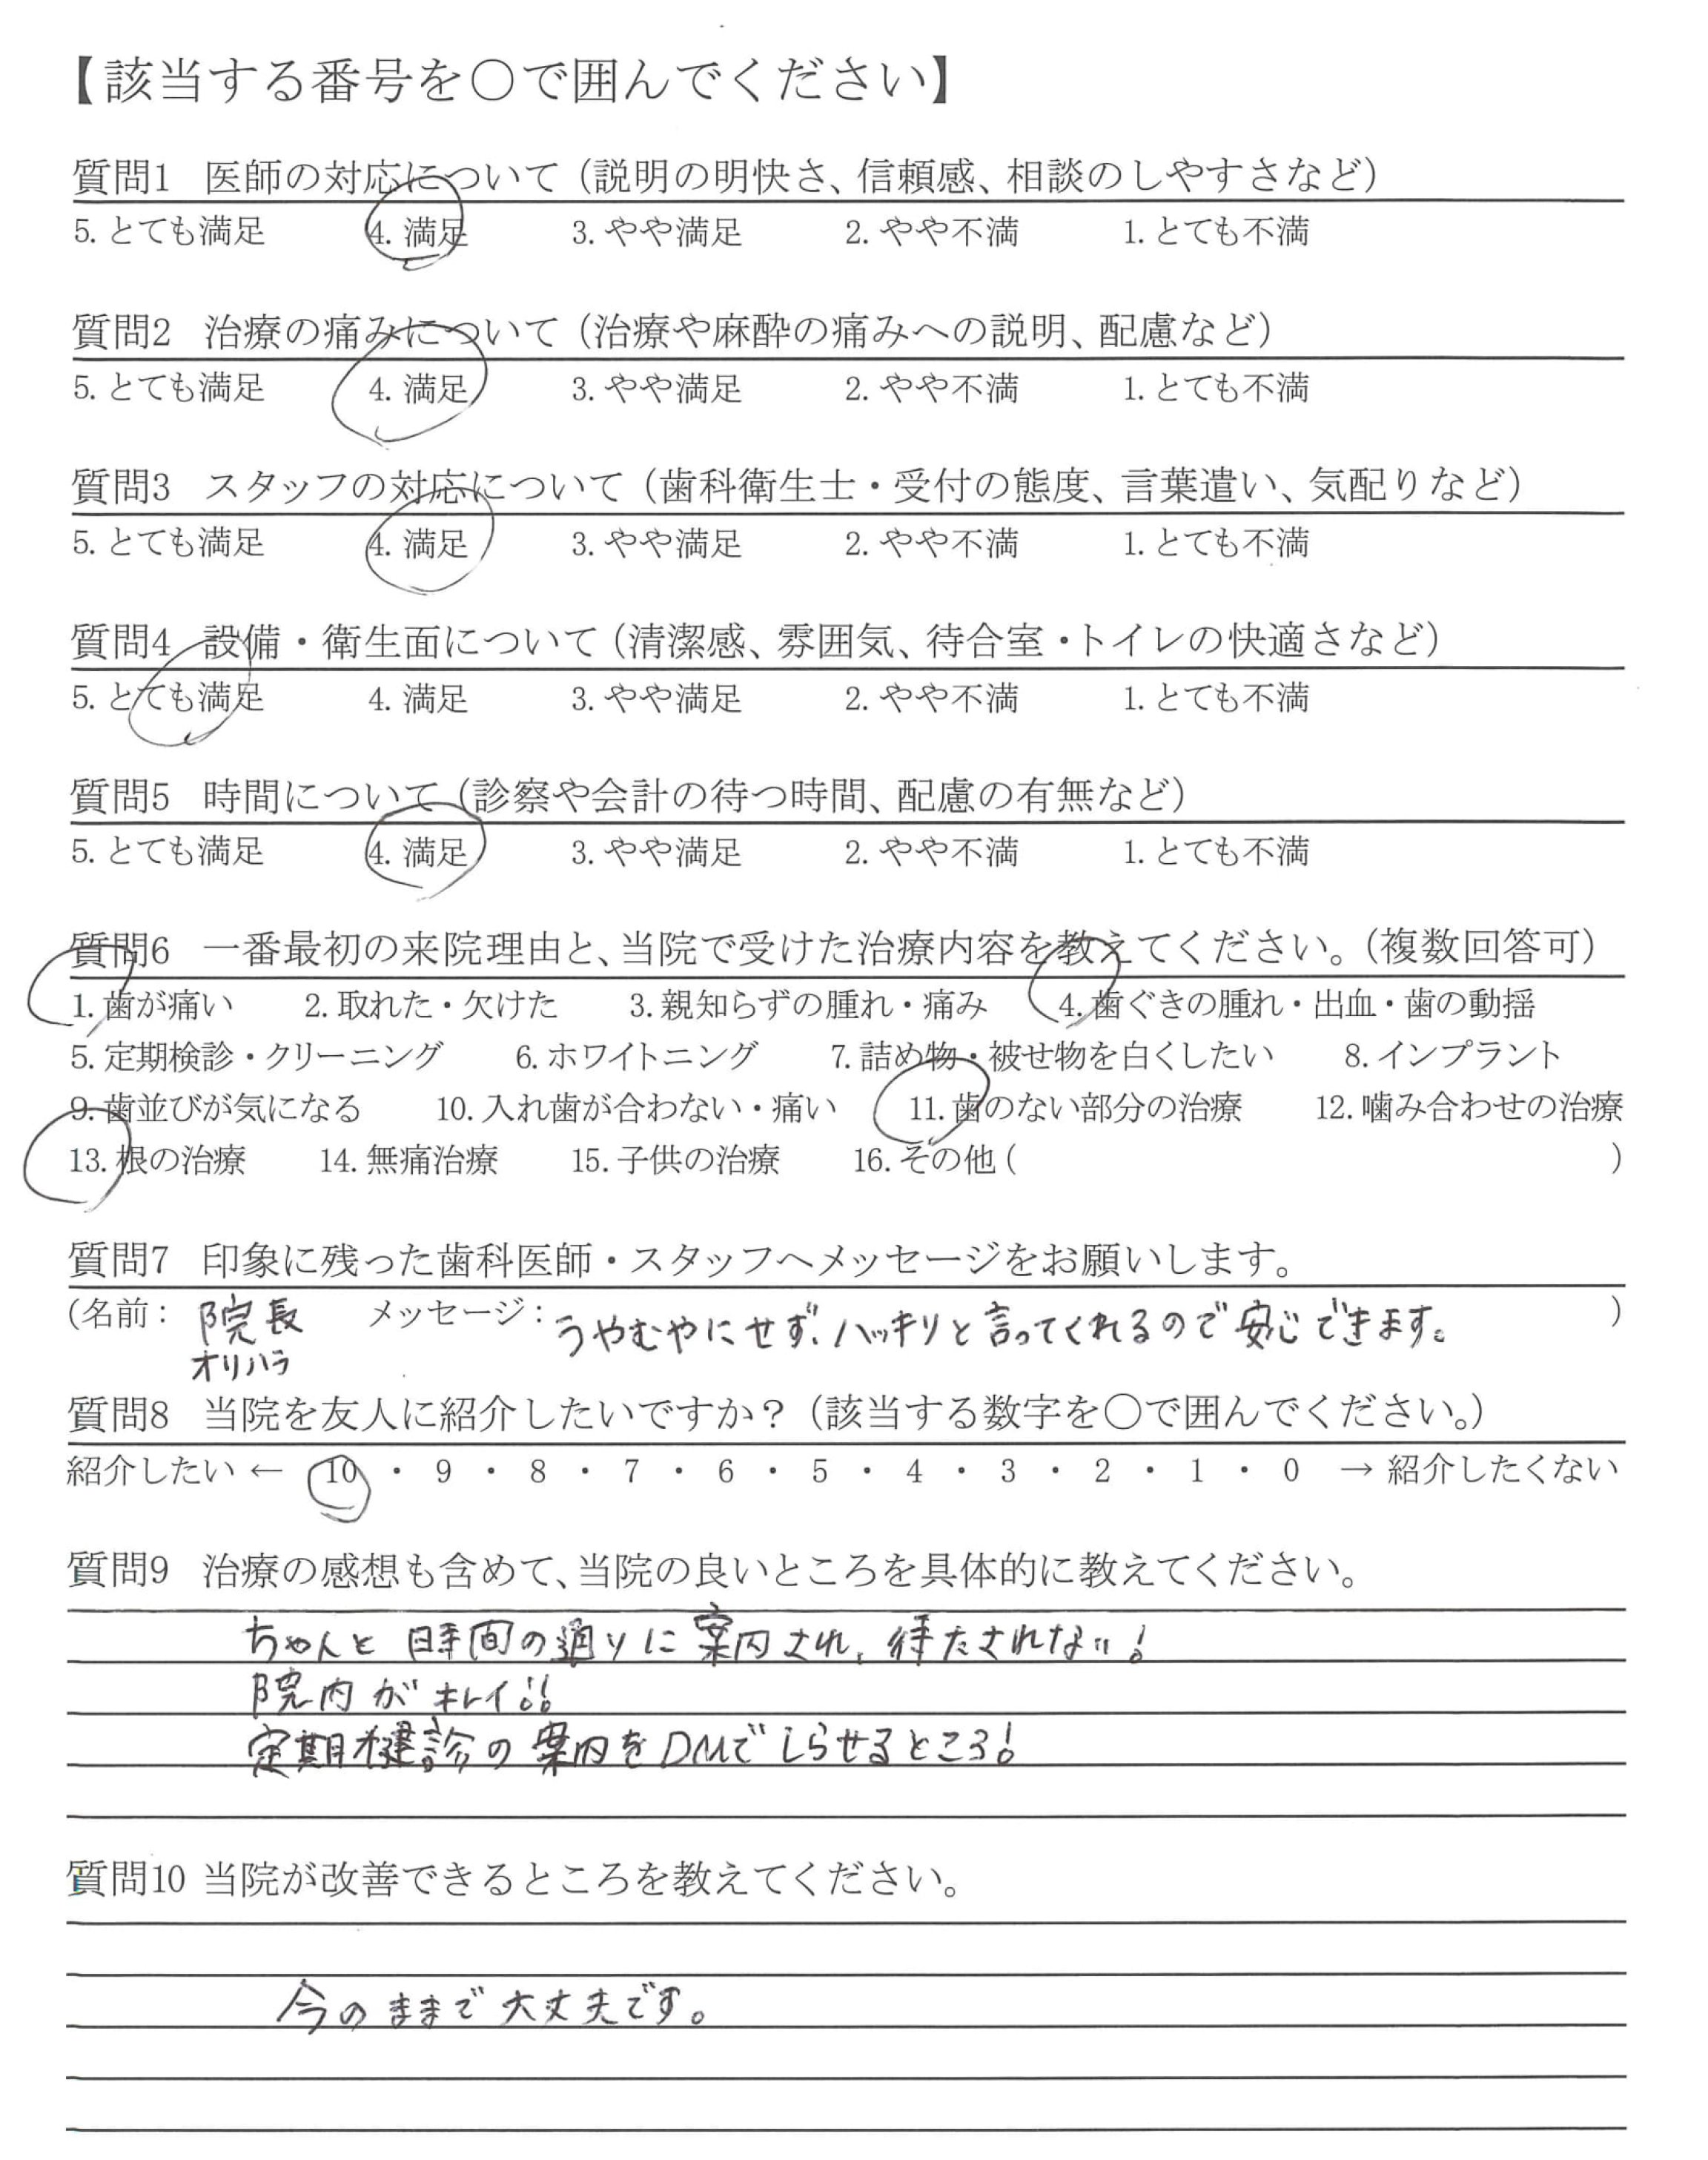 【該当する番号を○で囲んでください】
質問1 医師の対応について（説明の明快さ、信頼感、相談のしやすさなど）
5. とても満足 4. 満足 3. やや満足 2. やや不満 1. とても不満
質問2 治療の痛みについて（治療や麻酔の痛みへの説明、配慮など）
5. とても満足 4. 満足 3. やや満足 2. やや不満 1. とても不満
質問3 スタッフの対応について（歯科衛生士・受付の態度、言葉遣い、気配りなど）
5. とても満足 4. 満足 3. やや満足 2. やや不満 1. とても不満
質問4 設備・衛生面について（清潔感、雰囲気、待合室・トイレの快適さなど）
5. とても満足 4. 満足 3. やや満足 2. やや不満 1. とても不満
質問5 時間について（診察や会計の待つ時間、配慮の有無など）
5. とても満足 4. 満足 3. やや満足 2. やや不満 1. とても不満
質問6 一番最初の来院理由と、当院で受けた治療内容を教えてください。（複数回答可）
1. 歯が痛い 2. 取れた・欠けた 3. 親知らずの腫れ・痛み 4. 歯ぐきの腫れ・出血・歯の動揺
5. 定期検診・クリーニング 6. ホワイトニング 7. 詰め物・被せ物を白くしたい 8. インプラント
9. 歯並びが気になる 10. 入れ歯が合わない・痛い 11. 歯のない部分の治療 12. 噛み合わせの治療
13. 根の治療 14. 無痛治療 15. 子供の治療 16. その他（ ）
質問7 印象に残った歯科医師・スタッフへメッセージをお願いします。
（名前： 院長 メッセージ： うやむやにせず、ハッキリと言ってくれるので安心できます。 ）
オリハラ
質問8 当院を友人に紹介したいですか？（該当する数字を○で囲んでください。）
紹介したい ← 10 ・ 9 ・ 8 ・ 7 ・ 6 ・ 5 ・ 4 ・ 3 ・ 2 ・ 1 ・ 0 → 紹介したくない
質問9 治療の感想も含めて、当院の良いところを具体的に教えてください。
ちゃんと時間の通りに案内され、待たされない！
院内がキレイ！！
定期健診の案内をDMでしらせるところ！
質問10 当院が改善できるところを教えてください。
今のままで大丈夫です。